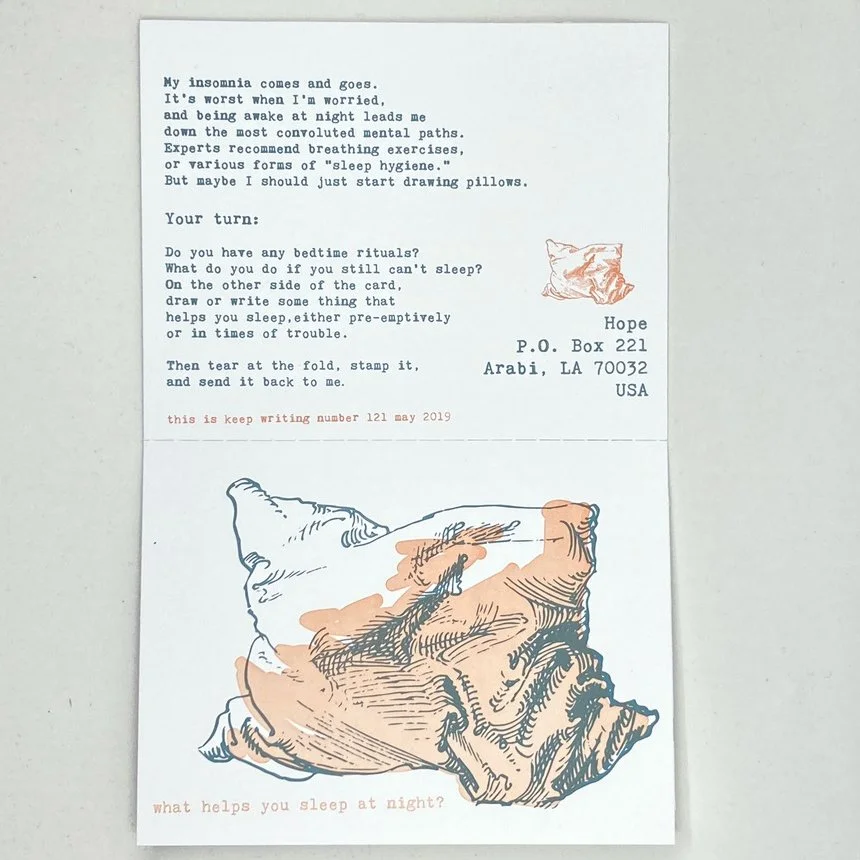 My insomnia comes and goes.
It's worst when I'm worried,
and being awake at night leads me
down the most convoluted mental paths.
Experts recommend breathing exercises,
or various forms of "sleep hygiene."
But maybe I should just start drawing pillows.
Your turn:
Do you have any bedtime rituals?
What do you do if you still can't sleep?
On the other side of the card,
draw or write some thing that
helps you sleep,either pre-emptively
or in times of trouble.
Then tear at the fold, stamp it,
and send it back to me.
this is keep writing number 121 may 2019
Hope
P.O. Box 221
Arabi, LA 70032
USA
what helps you sleep at night?